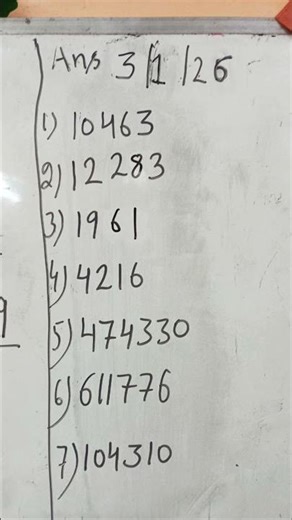 Ans 3/1/26
1) 10463
2) 12283
3) 1961
4) 4216
5) 474330
6) 611776
7) 104310
9